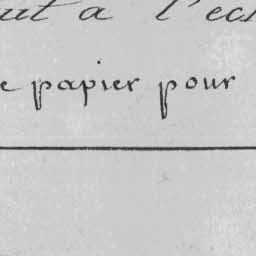 ut à l'ecl
e papier pour